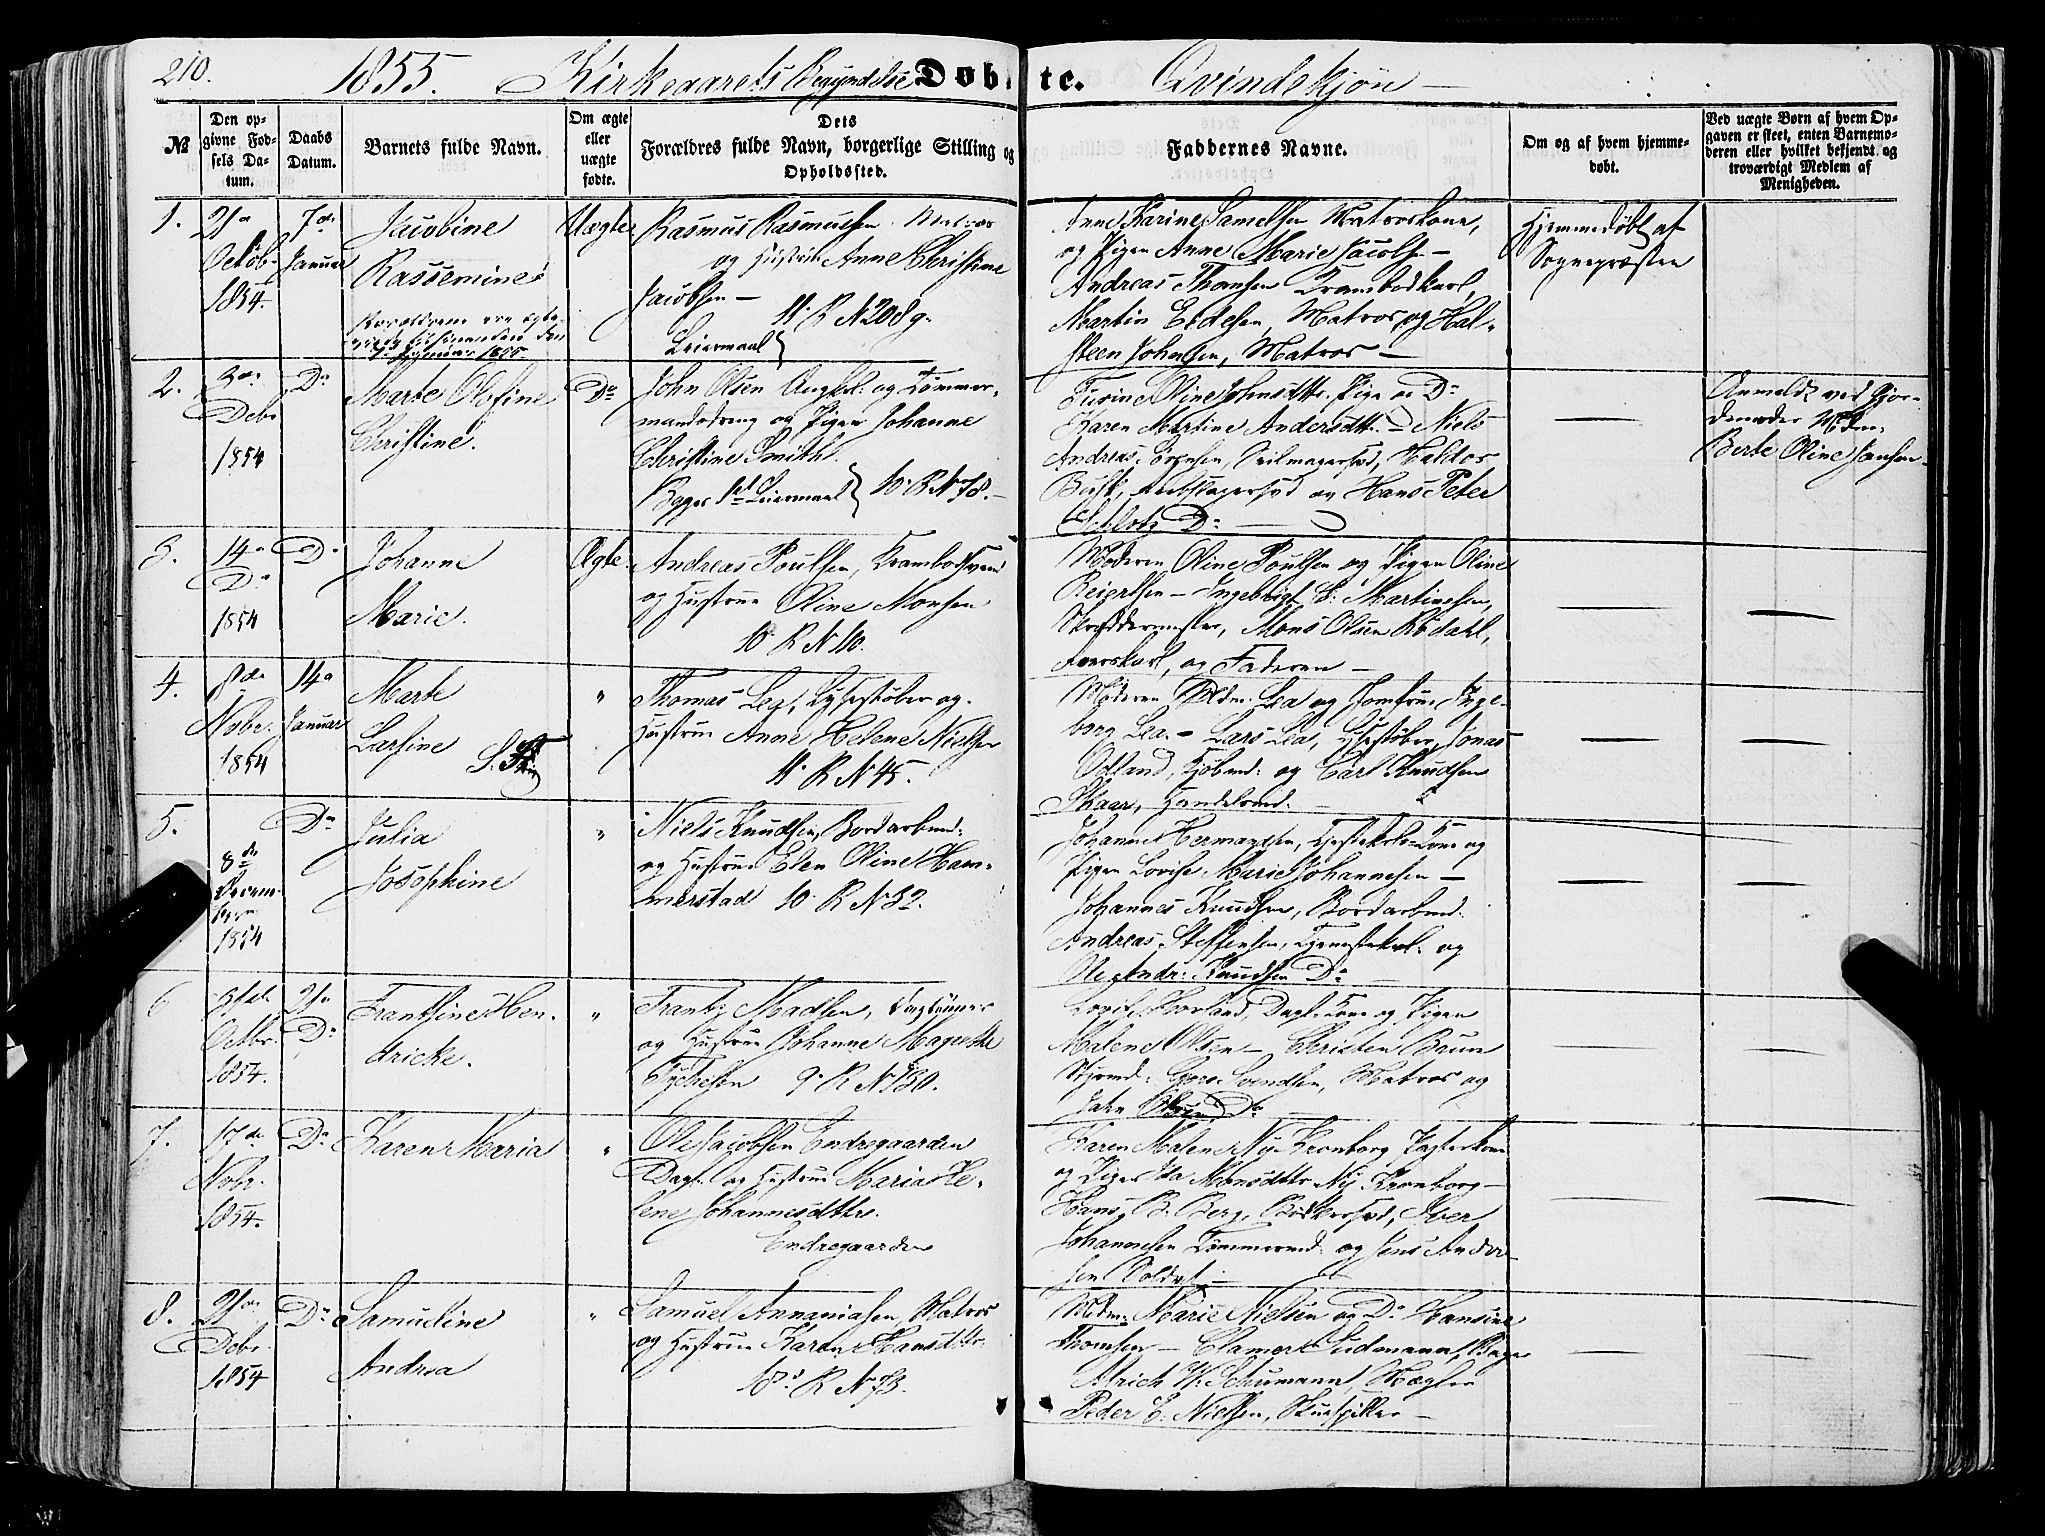 210.
1855. Kirkeaarets Begyndelse Døbte. Qvindekjøn —
№
Den opgivne Fodsels Datum.
Daabs Datum.
Barnets fulde Navn.
Om ægte eller uægte fodte.
Dets
Forældres fulde Navn, borgerlige Stilling og
Opholdssted.
Faddernes Navne.
Om og af hvem hjemmedobt.
Ved uægte Børn af hvem Opgaven er skeet, enten Barnemoderen eller hvilket bekjendt og troværdigt Medlem af Menigheden.
1.
21de
Octob.
1854.
7de
Januar
Jacobine
Rassemine
Forældrene ere
Januar 1855.
Uægte
Rasmus Rasmussen Matros
og Hustru Anne Christine
Jacobsen —
11. R N 208 g.
Leiermaal
Anne Karine Samelsen Matroskone,
og Pigen Anne Marie Jacobs —
Andreas Thomsen Krambodkarl,
Martin Endesen, Matros, og Hal-
steen Johnsen, Matros —
Hjemmedøbt af
Sognepræsten
2.
Debr
1854
Do
Marte Olefine
Christine.
Do
John Olsen Ungkl. og Tømmer-
mandsdreng og Pigen Johanne
Christine Smith.
Begges 1st Leiermaal 10. R N 78. —
Oline Johnsdttr. Pige og Do
Karen Martine Andersdttr. — Niels
Andreas Sørensen, Seilmagersvd, Haldor
og Hans Peter
Do —
Anmeldt ved Gjor-
demoder Mdm.
Berte Oline Hansen.
3.
14de
Do
1854
Do
Johanne
Marie.
Ægte.
Andreas Poulsen, Krambodsvend
og Hustrue Oline Monsen
10. R N 10.
Moderen Oline Poulsen og Pigen Oline
Reiersen — Ingebrigt B. Martinesen,
Skræddermester, Mons Olsen Rødahl,
og Faderen —
4.
8de
Novbr.
1854
14de
Januar
Marte
Larsine
"
Thomas Lea, Lysestøber og
Hustrue Anne Helene Nielsen
11. R N 45.
Moderen Mdm. Lea og Jomfrue Inge-
borg Lea. — Lars Lea, Lysestøber, Jonas
Odland, Kjøbmd. og Carl Knudsen
Skaar, Handelsmd.
5.
8de
Decem-
ber
1854
Do
Julia
Josephine
"
Niels Knudsen, Bordarbmd.
og Hustrue Elen Oline Ham-
merstad 10. R N 32.
Johanne Hermandsen, Kone og
Pigen Lovise Marie Johannesen —
Johannes Knudsen, Bordarbmd.
Andreas Steffensen, Tjenestekarl og
Ole Andr: Knudsen Do
6
Octbr.
1854.
21de
Do
Frantsine Hen-
dricke.
"
Frantz Madsen, Dagleier
og Hustrue Johanne Magrethe
9. R N 130.
Dagl. Kone og Pigen
Malene Olsen — Christen Bruun
Styrmd. Svendsen, Matros og
Olsen Do
7.
17de
Nobr.
1854.
Do
Karen Maria
"
Ole Jacobsen Endregaarden
Dagl. og Hustrue Maria He-
lene Johannesdttr.
Endregaarden
Karen Malene Ny Kronborg
og Pigen Ida Monsdttr Ny Kronborg —
Hans B. Berg, Bødkersvd, Iver
Johannesen Tømmermd. og Jens Ander-
sen Soldat —
8.
21de
Debr.
1854
Do
Samueline
Andrea
"
Samuel Annaniasen, Matros
og Hustrue Karen Hansdttr.
10. R N 73.
Mdm. Marie Nielsen og Do Hansine
Thomsen — Clamer Sudmann, Bager
Alrich W. Schumann, Mægler
Peder E. Nielsen, Skuespiller —